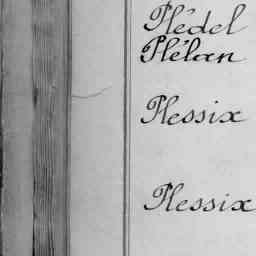 Plédel
Plélan
Plessix
Plessix